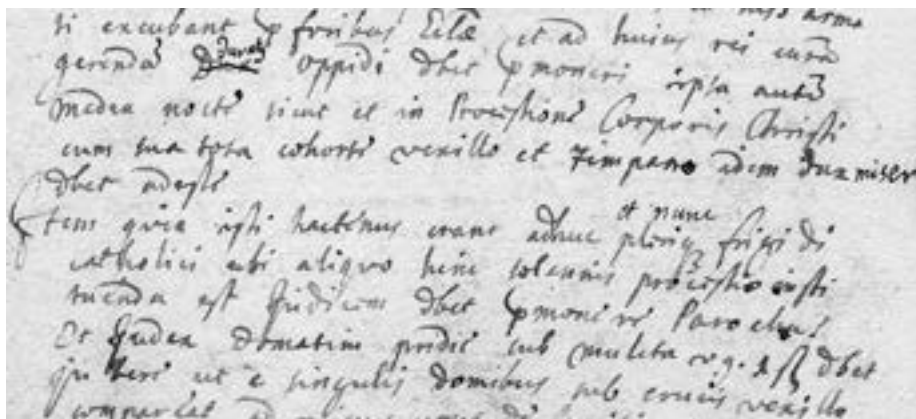 arma
ti excubant p foribus Eccłæ et ad huius rei curã
gerendã oppidi dbet pmoneri ipsa autẽ
media nocte sicut et in Processione Corporis Christi
cum sua tota cohorte vexillo et Timpano idem
dbet adesse
Item quia isti hactenus erant adhuc et nunc pleriq frigidi
catholici ubi aliquo hinc solennis processio insti
tuenda est Judicem dbet pmonere Parochus
Et Judex domatim pridie sub mulcta v.g. dbet
jubere ut e singulis domibus sub crucis vexillo
compareat